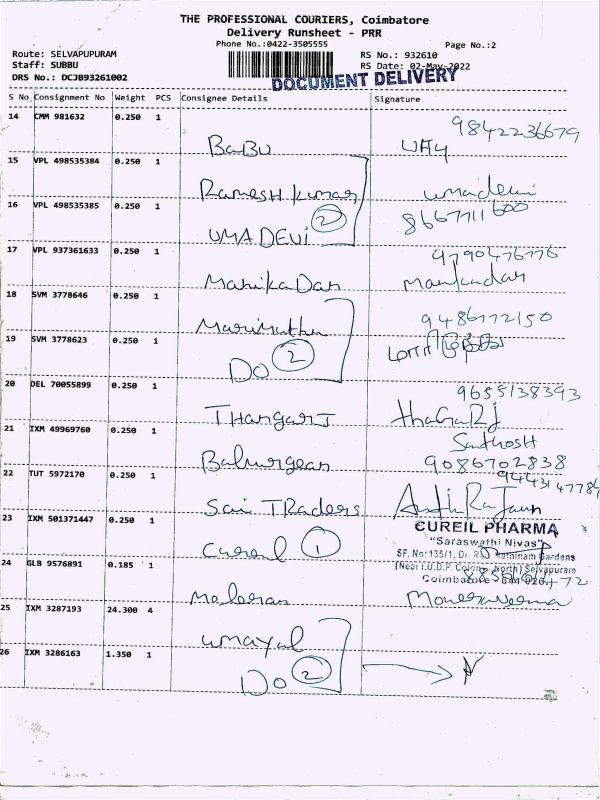 THE PROFESSIONAL COURIERS, Coimbatore
Delivery Runsheet - PRR
Phone No.:0422-3505555
Page No.:2
Route: SELVAPUPURAM
RS No.: 932610
Staff: SUBBU
RS Date: 02-May-2022
DRS No.: DCJB93261002
DOCUMENT DELIVERY
S No Consignment No Weight PCS Consignee Details Signature
14 CMM 981632 0.250 1
9842236679
BaBU
15 VPL 498535384 0.250 1
Ramesh Kumar umadevi
16 VPL 498535385 0.250 1
8667711600
UMA DEVi 2
17 VPL 937361633 0.250 1
9790476776
ManikaDan Manikandan
18 SVM 3778646 0.250 1
Marimuthu 9486772150
19 SVM 3778623 0.250 1
Do 2 மாரிமுத்து
20 DEL 70055899 0.250 1
9655138393
THangaRJ thaGaRj
21 IXM 49969760 0.250 1
Santhosh
9086702838
22 TUT 5972170 0.250 1
Sai TRaders
23 IXM 501371447 0.250 1
CUREIL PHARMA
"Saraswathi Nivas"
Cureil 1
SF. No: 135/1, Dr. Gardens
24 GLB 9576891 0.185 1
(Near T.U.D.F. Colony North) Selvapuram
Coimbatore
25 IXM 3287193 24.300 4
umayal
26 IXM 3286163 1.350 1
Do 2